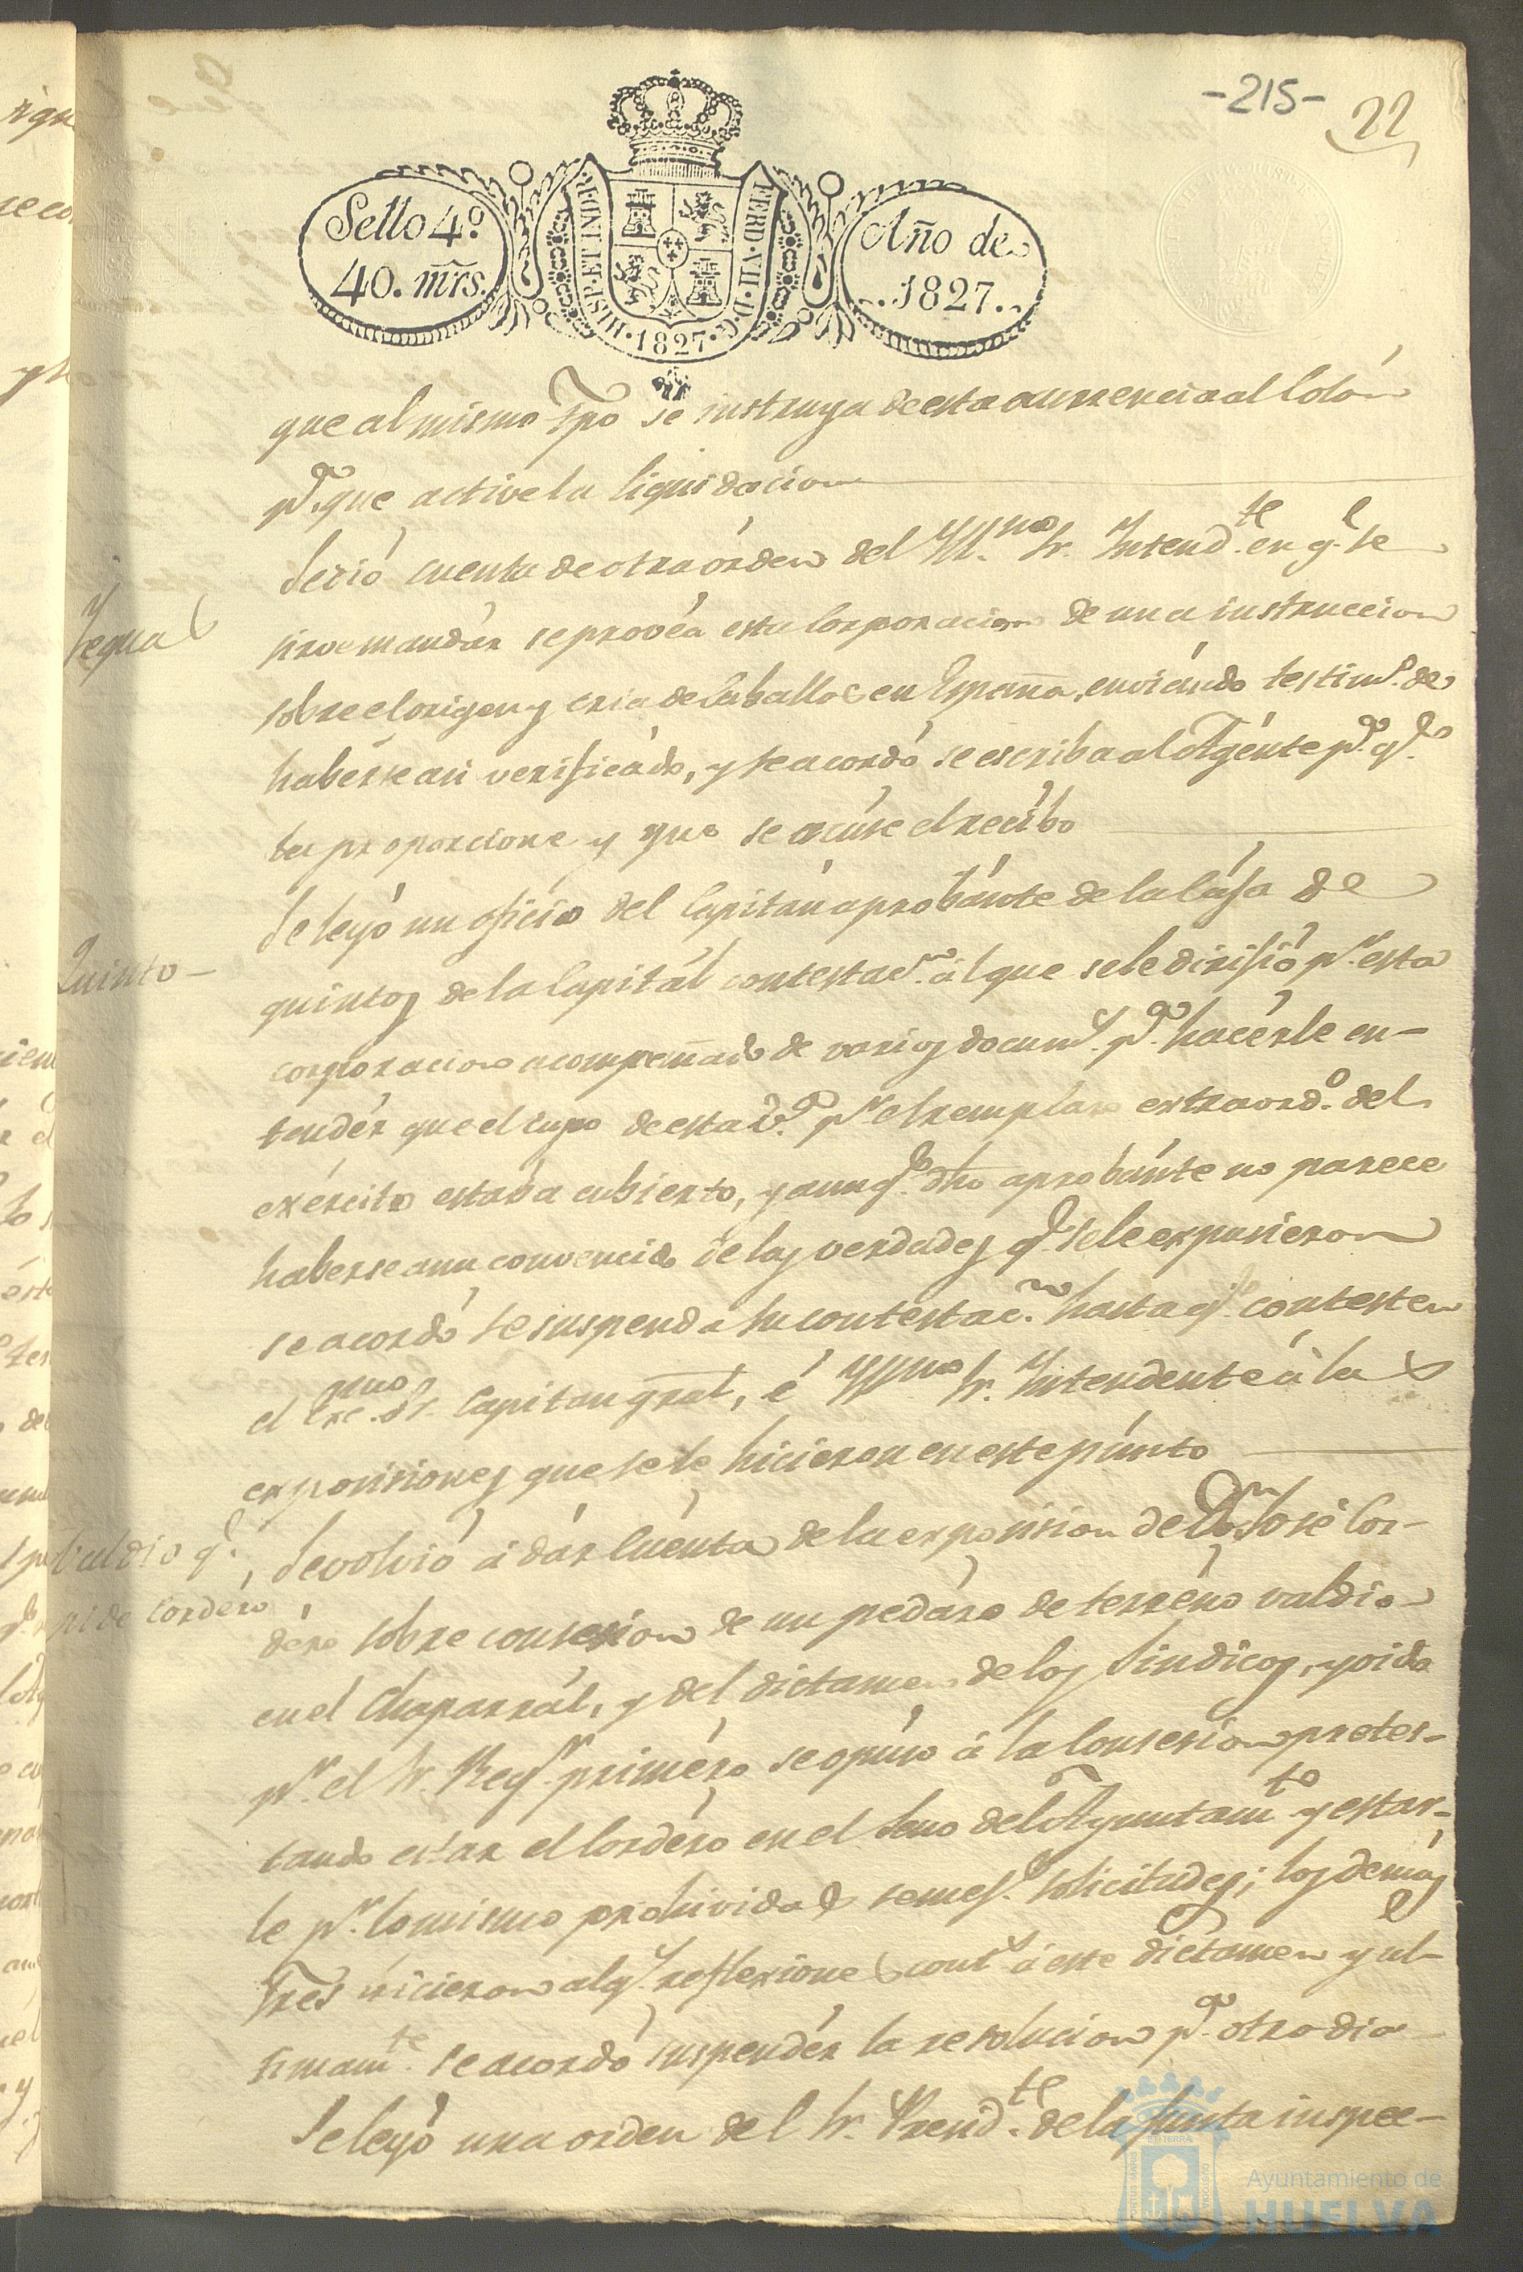 -215-
22
Sello 4º
40. mrs.
HISP. ET IND. R.
1827
FERD. VII. D. G.
Año de
1827.
que al mismo tpo se instruya de esta ocurrencia al Colón
pª. que active la liquidacion
Se dió cuenta de otra órden del Yll.mo Sr. Yntend.te en q.e se
Yeguas
sirve mandár se provéa esta Corporacion de una instruccion
sobre el origen y cria de Caballos en España, enviándo testim.º de
habérse asi verificádo, y se acordó se escriba al Agénte pª. q.e
la proporcione y que se acúse el recíbo
Se leyó un oficio del Capitán aprobánte de la Cása de
Quinto-
quintos de la Capitál contestac.n ál que se le dirijió p.r esta
corporacion acompañado de varios docum.s pª. hacérle en-
tendér que el cupo de esta Vª. p.r el remplazo extraord.º del
exército estaba cubierto, y aunq.e dho aprobánte no parece
haberse aun convencido de las verdades q.e se le expusieron
se acordó se suspenda su contestac.n hasta q.e contesten
el Exc.mo Sr. Capitan gral, é Yll.mo Sr. Yntendente á las
exposiciones que se le hicieron en este púnto
baldio q.e
pide Cordéro
Se volvió á dár Cuénta de la exposision de Dn. José Cor-
déro sobre consesion de un pedázo de terréno valdio
en el Chaparrál, y del dictamen de los Sindicos, y oido
p.r el Sr. Reg.r priméro se opúso á la Consesion protes-
tando estar el Cordéro en el Seno del Ayuntam.to y estar-
le p.r lo mismo prohividas semej.s solicitudes; los demás
Sres hicieron alg.s reflexiones cont.s á este dictamen y ul-
timam.te se acordó suspendér la resolucion pª. otro dia
Se leyó una orden del Sr. Presid.te de la Junta inspec-
Ayuntamiento de
HUELVA